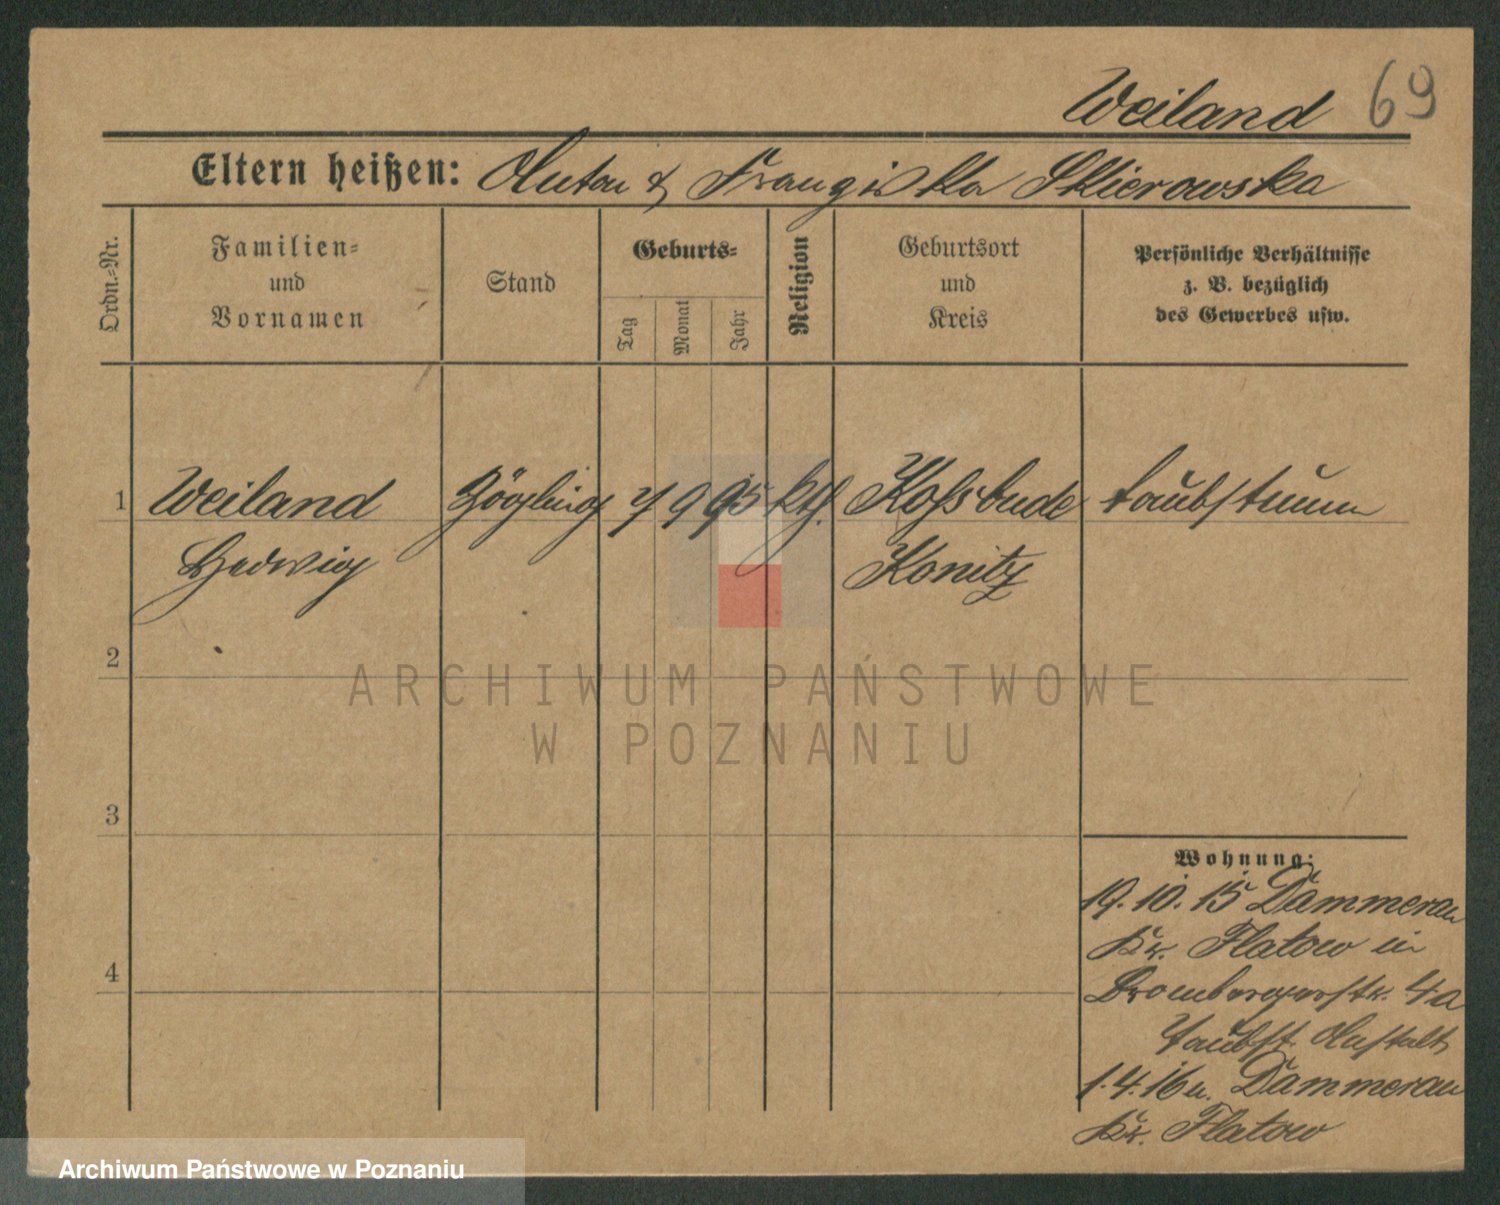 Weiland 69
Eltern heißen: Anton & Franziska Skierowska
Ordn.-Nr.
Familien-
und
Vornamen
Stand
Geburts-
Tag
Monat
Jahr
Religion
Geburtsort
und
Kreis
Persönliche Verhältnisse
z. B. bezüglich
des Gewerbes usw.
1 Weiland Zögling 9 95 kth. Kossbude taubstumm
Hedwig Konitz
2
3
4
Wohnung:
19. 10. 15 Dammerau
Kr. Flatow in
Brombergerstr. 4a
Taubst. Anstalt
1. 4. 16 n. Dammerau
Kr. Flatow
ARCHIWUM PAŃSTWOWE
W POZNANIU
Archiwum Państwowe w Poznaniu